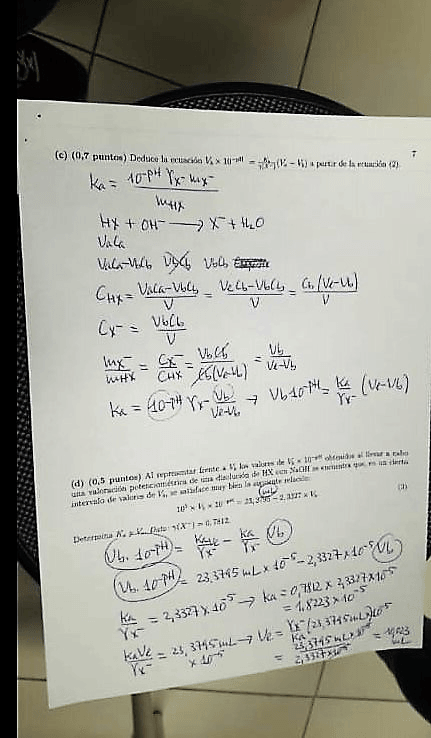 7
(c) (0,7 puntos) Deduce la ecuación V_b × 10^-pH = K_a/γ(X^-) (V_e − V_b) a partir de la ecuación (2).
Ka = 10^-pH γx- mx- / mHX
HX + OH^- ⟶ X^- + H2O
VaCa
VaCa-VbCb VbCb VbCb
C_HX = VaCa-VbCb / V = VeCb-VbCb / V = Cb (Ve-Vb) / V
Cx- = VbCb / V
mx- / mHX = Cx- / CHX = VbCb / Cb(Ve-Vb) = Vb / Ve-Vb
Ka = 10^-pH γx- Vb / Ve-Vb → Vb 10^-pH = Ka / γx- (Ve-Vb)
(d) (0,5 puntos) Al representar frente a V_b los valores de V_b × 10^-pH obtenidos al llevar a cabo
una valoración potenciométrica de una disolución de HX con NaOH se encuentra que, en un cierto
intervalo de valores de V_b, se satisface muy bien la siguiente relación:
(mL)
10^5 × V_b × 10^-pH = 23,3795 − 2,3327 × V_b (3)
Determina K_a y V_e. Dato: γ(X^-) = 0,7812
Vb. 10^-pH = KaVe / γx- − Ka / γx- Vb
Vb. 10^-pH = 23,3795 mL × 10^-5 - 2,3327 × 10^-5 Vb
Ka / γx- = 2,3327 × 10^-5 → Ka = 0,7812 × 2,3327 × 10^-5
= 1,8223 × 10^-5
KaVe / γx- = 23,3795 mL × 10^-5 → Ve = γx- (23,3795 mL) × 10^-5 / Ka
= 23,3795 mL × 10^-5 / 2,3327 × 10^-5 = 10,023 mL